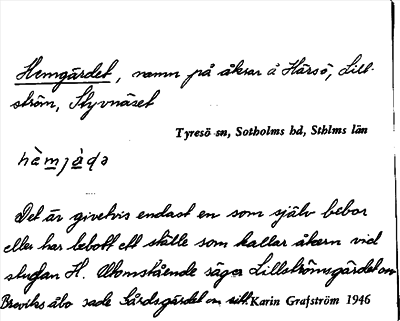 Hemgärdet, namn på åkrar å Härsö, Lill-
ström, Styvnäset
Tyresö sn, Sotholms hd, Sthlms län
Det är givetvis endast en som själv bebor
eller har bebott ett ställe som kallar åkern vid
stugan H. Utomstående säger Lillströmsgärdet om
Breviks åbo sade Gårdsgärdet om sitt. Karin Grafström 1946